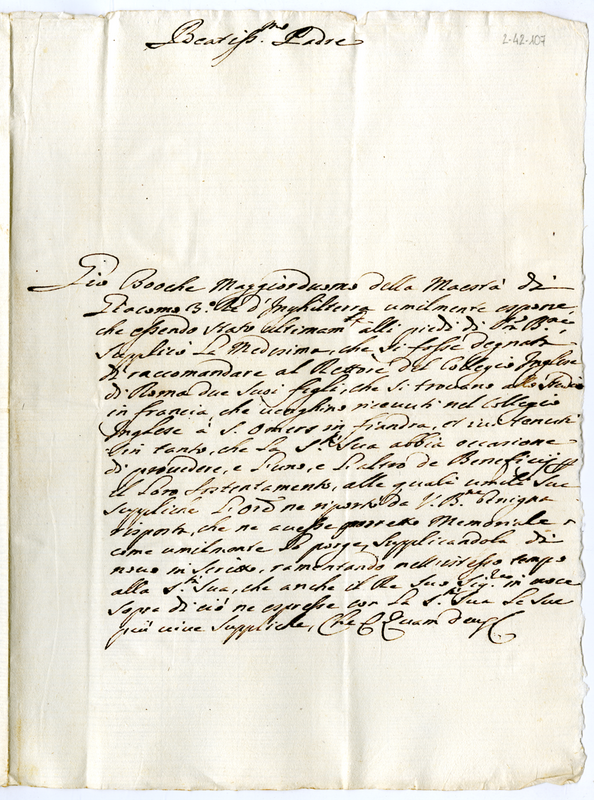 Beatiss.mo Padre
2-42-107
Gio Booche Maggiorduomo della Maestà di
Giacomo 3.o Re d'Inghilterra umilmente espone,
che essendo stato ultimam.te alli piedi di V.
Supplicò La Medesima, che si fosse degnata
di raccomandare al Rettore del Collegio Inglese
di Roma due suoi figli, che si trovano allo studio
in francia, che venghino ricevuti nel Collegio
Inglese à S. Omers in fiandra, et ivi tenuti
in tanto, che La S.tà Sua abbia occasione
di provedere, e L'uno, e L'altro de Beneficij
il Loro sostentamento, alle quali umili sue
suppliche L'ore ne riportò da V. B.ne benigna
risposta, che ne avesse porretto Memoriale
come umilmente lo porge, supplicandola di
novo in scritto, ramentando nell'istesso tempo
alla S.tà Sua, che anche il Re suo Sig.re in voce
sopra di ciò ne espresse con La S.tà Sua Le sue
più vive suppliche, Che Quam Deus